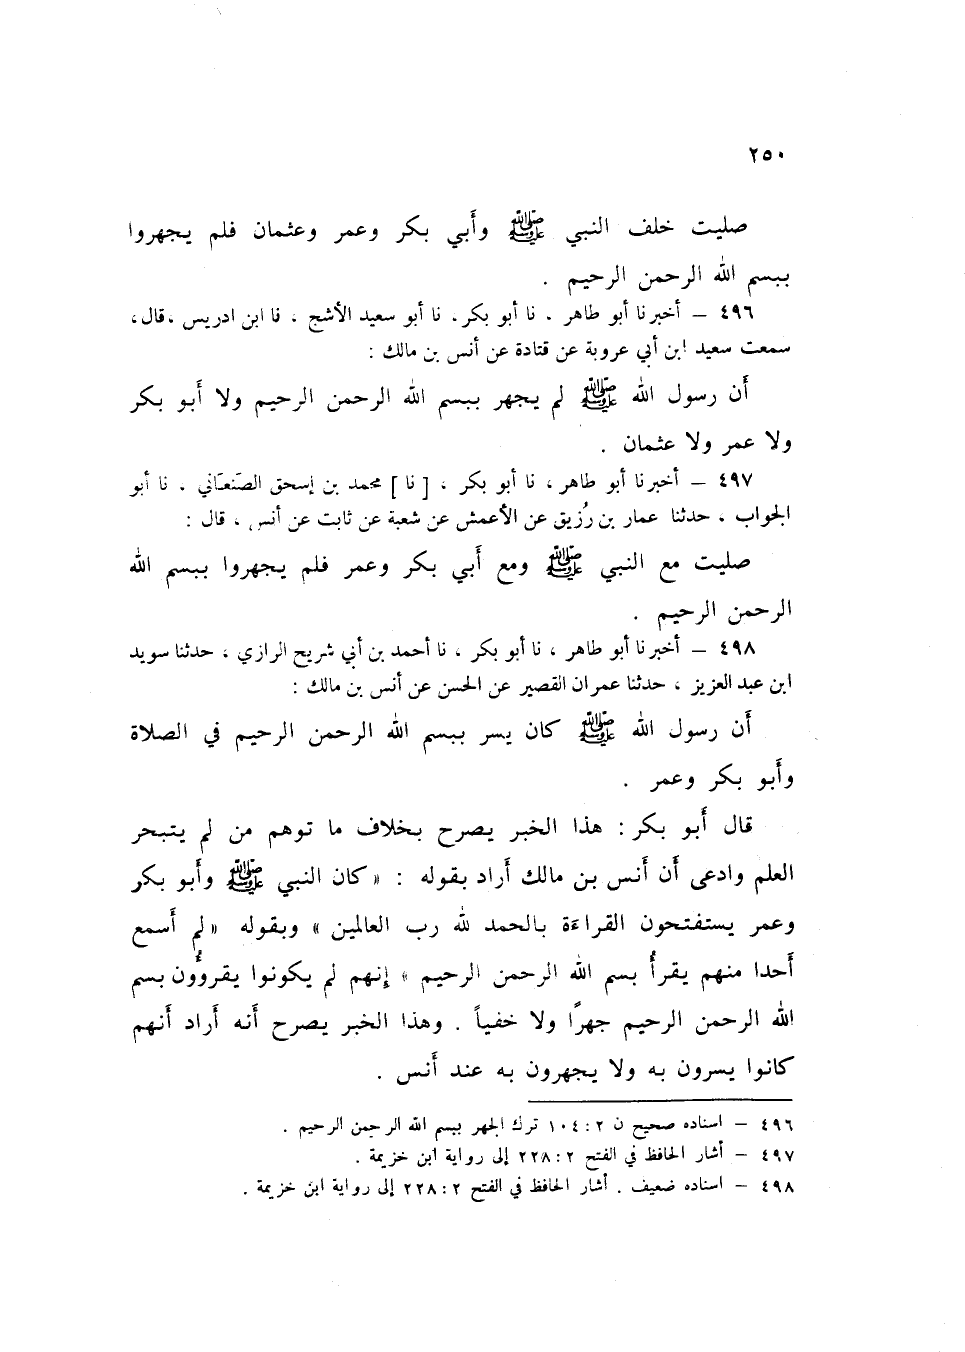 ٢٥٠
صليت خلف النبي ﷺ وأَبي بكر وعمر وعثمان فلم يجهروا
ببسم الله الرحمن الرحيم .
٤٩٦ – أخبرنا أبو طاهر . نا أبو بكر. نا أبو سعيد الأشج ، نا ابن ادريس ،قال،
سمعت سعيد ابن أبي عروبة عن قتادة عن أنس بن مالك :
أَن رسول الله ﷺ لم يجهر ببسم الله الرحمن الرحيم ولا أَبو بكر
ولا عمر ولا عثمان .
٤٩٧ – أخبرنا أبو طاهر ، نا أبو بكر ، [ نا ] محمد بن إسحق الصنعاني . نا أبو
الجواب ، حدثنا عمار بن رُزيق عن الأعمش عن شعبة عن ثابت عن أنس ، قال :
صليت مع النبي ﷺ ومع أَبي بكر وعمر فلم يجهروا ببسم الله
الرحمن الرحيم .
٤٩٨ – أخبرنا أبو طاهر ، نا أبو بكر ، نا أحمد بن أبي شريح الرازي ، حدثنا سويد
ابن عبد العزيز ، حدثنا عمران القصير عن الحسن عن أنس بن مالك :
أَن رسول الله ﷺ كان يسر ببسم الله الرحمن الرحيم في الصلاة
وأَبو بكر وعمر .
قال أَبو بكر : هذا الخبر يصرح بخلاف ما توهم من لم يتبحر
العلم وادعى أَن أَنس بن مالك أَراد بقوله : « كان النبي ﷺ وأَبو بكر
وعمر يستفتحون القراءة بالحمد لله رب العالمين » وبقوله « لم أَسمع
أَحدا منهم يقرأُ بسم الله الرحمن الرحيم » إنهم لم يكونوا يقروُون بسم
الله الرحمن الرحيم جهرًا ولا خفياً . وهذا الخبر يصرح أَنه أَراد أَنهم
كانوا يسرون به ولا يجهرون به عند أَنس .
٤٩٦ – اسناده صحيح ن ٢ : ١٠٤ ترك الجهر ببسم الله الرحمن الرحيم .
٤٩٧ – أشار الحافظ في الفتح ٢ : ٢٢٨ إلى رواية ابن خزيمة .
٤٩٨ – اسناده ضعيف . أشار الحافظ في الفتح ٢ : ٢٢٨ إلى رواية ابن خزيمة .